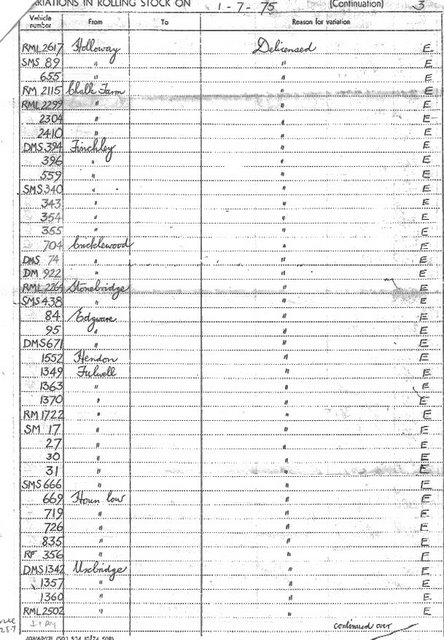 VARIATIONS IN ROLLING STOCK ON 1-7-75 (Continuation) 3
Vehicle number From To Reason for variation
RML 2617 Holloway Delicensed E
SMS 89 " " E
655 " " E
RM 2115 Chalk Farm " E
RML 2299 " " E
2304 " " E
2410 " " E
DMS 394 Finchley " E
396 " " E
559 " " E
SMS 340 " " E
343 " " E
354 " " E
355 " " E
704 Cricklewood " E
DMS 74 " " E
DM 922 " " E
RML 2264 Stonebridge " E
SMS 438 " " E
84 Edgware " E
95 " " E
DMS 671 " " E
1552 Hendon " E
1349 Fulwell " E
1363 " " E
1370 " " E
RM 1722 " " E
SM 17 " " E
27 " " E
30 " " E
31 " " E
SMS 666 " " E
669 Hounslow " E
719 " " E
726 " " E
835 " " E
RF 356 " " E
DMS 1342 Uxbridge " E
1357 " " E
1360 " " E
RML 2502 " " E
continued over